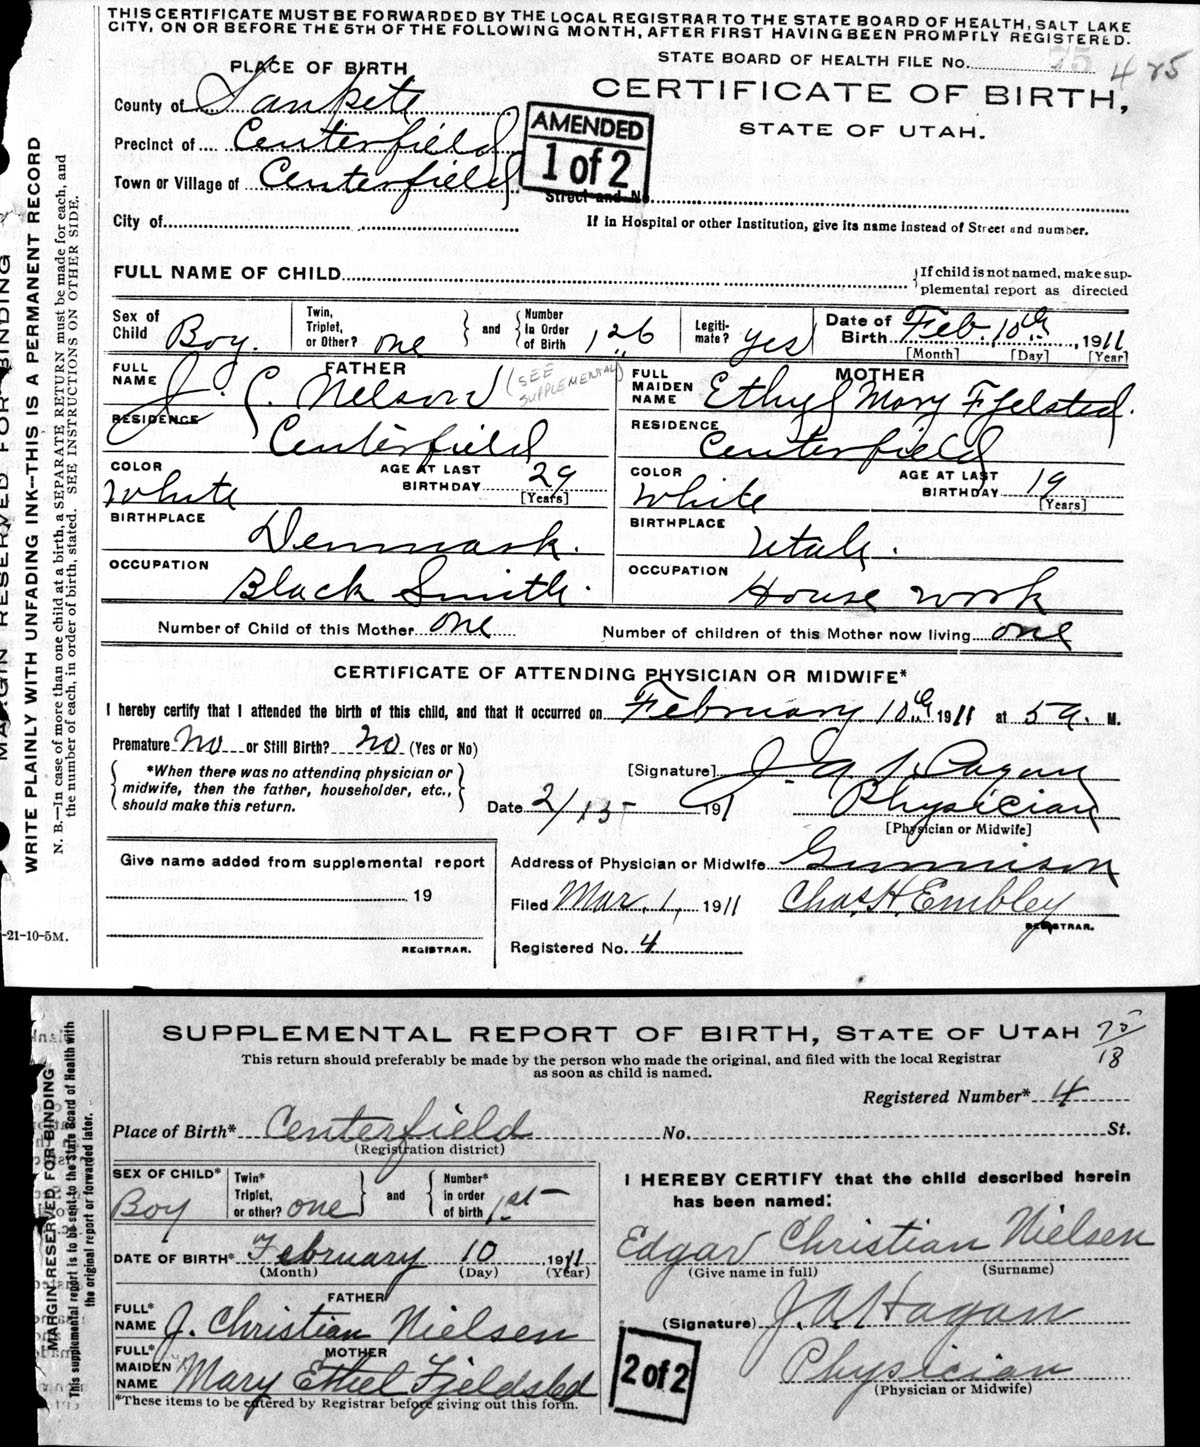 THIS CERTIFICATE MUST BE FORWARDED BY THE LOCAL REGISTRAR TO THE STATE BOARD OF HEALTH, SALT LAKE
CITY, ON OR BEFORE THE 5TH OF THE FOLLOWING MONTH, AFTER FIRST HAVING BEEN PROMPTLY REGISTERED.
STATE BOARD OF HEALTH FILE No. 75
PLACE OF BIRTH
CERTIFICATE OF BIRTH,
STATE OF UTAH.
County of Sanpete
Precinct of Centerfield
Town or Village of Centerfield
AMENDED
1 of 2
Street and No.
City of
If in Hospital or other Institution, give its name instead of Street and number.
FULL NAME OF CHILD
If child is not named, make sup-
plemental report as directed
Sex of Child Boy. Twin, Triplet, or Other? one and Number in Order of Birth Legiti-mate? yes Date of Birth Feb. 10th, 1911
[Month] [Day] [Year]
FATHER
FULL NAME J. C. Nelson (SEE SUPPLEMENTAL)
RESIDENCE Centerfield
COLOR White AGE AT LAST BIRTHDAY 29 [Years]
BIRTHPLACE Denmark.
OCCUPATION Black Smith.
MOTHER
FULL MAIDEN NAME Ethyl Mary Fjelsted.
RESIDENCE Centerfield
COLOR White AGE AT LAST BIRTHDAY 19 [Years]
BIRTHPLACE Utah.
OCCUPATION House work
Number of Child of this Mother one Number of children of this Mother now living one
CERTIFICATE OF ATTENDING PHYSICIAN OR MIDWIFE*
I hereby certify that I attended the birth of this child, and that it occurred on February 10th 1911 at 5 a. M.
Premature No or Still Birth? No (Yes or No)
*When there was no attending physician or
midwife, then the father, householder, etc.,
should make this return.
[Signature] J. A. Hagan
Date 2/15 191
Physician
[Physician or Midwife]
Give name added from supplemental report
19
REGISTRAR.
Address of Physician or Midwife Gunnison
Filed Mar. 1, 1911 Chas. H. Embley
REGISTRAR.
Registered No. 4
MARGIN RESERVED FOR BINDING
WRITE PLAINLY WITH UNFADING INK—THIS IS A PERMANENT RECORD
N. B.—In case of more than one child at a birth, a SEPARATE RETURN must be made for each, and
the number of each, in order of birth, stated. SEE INSTRUCTIONS ON OTHER SIDE.
-21-10-5M.
SUPPLEMENTAL REPORT OF BIRTH, STATE OF UTAH 75/18
This return should preferably be made by the person who made the original, and filed with the local Registrar
as soon as child is named.
Registered Number* 4
Place of Birth* Centerfield No. St.
(Registration district)
SEX OF CHILD* Boy Twin* Triplet, or other? one and Number* in order of birth 1st
DATE OF BIRTH* February 10 1911
(Month) (Day) (Year)
FATHER
FULL* NAME J. Christian Nielsen
MOTHER
FULL* MAIDEN NAME Mary Ethel Fjeldsted
*These items to be entered by Registrar before giving out this form.
I HEREBY CERTIFY that the child described herein
has been named:
Edgar Christian Nielsen
(Give name in full) (Surname)
(Signature) J. A. Hagan
2 of 2
Physician
(Physician or Midwife)
MARGIN RESERVED FOR BINDING
This supplemental report is to be sent to the State Board of Health with
the original report or forwarded later.